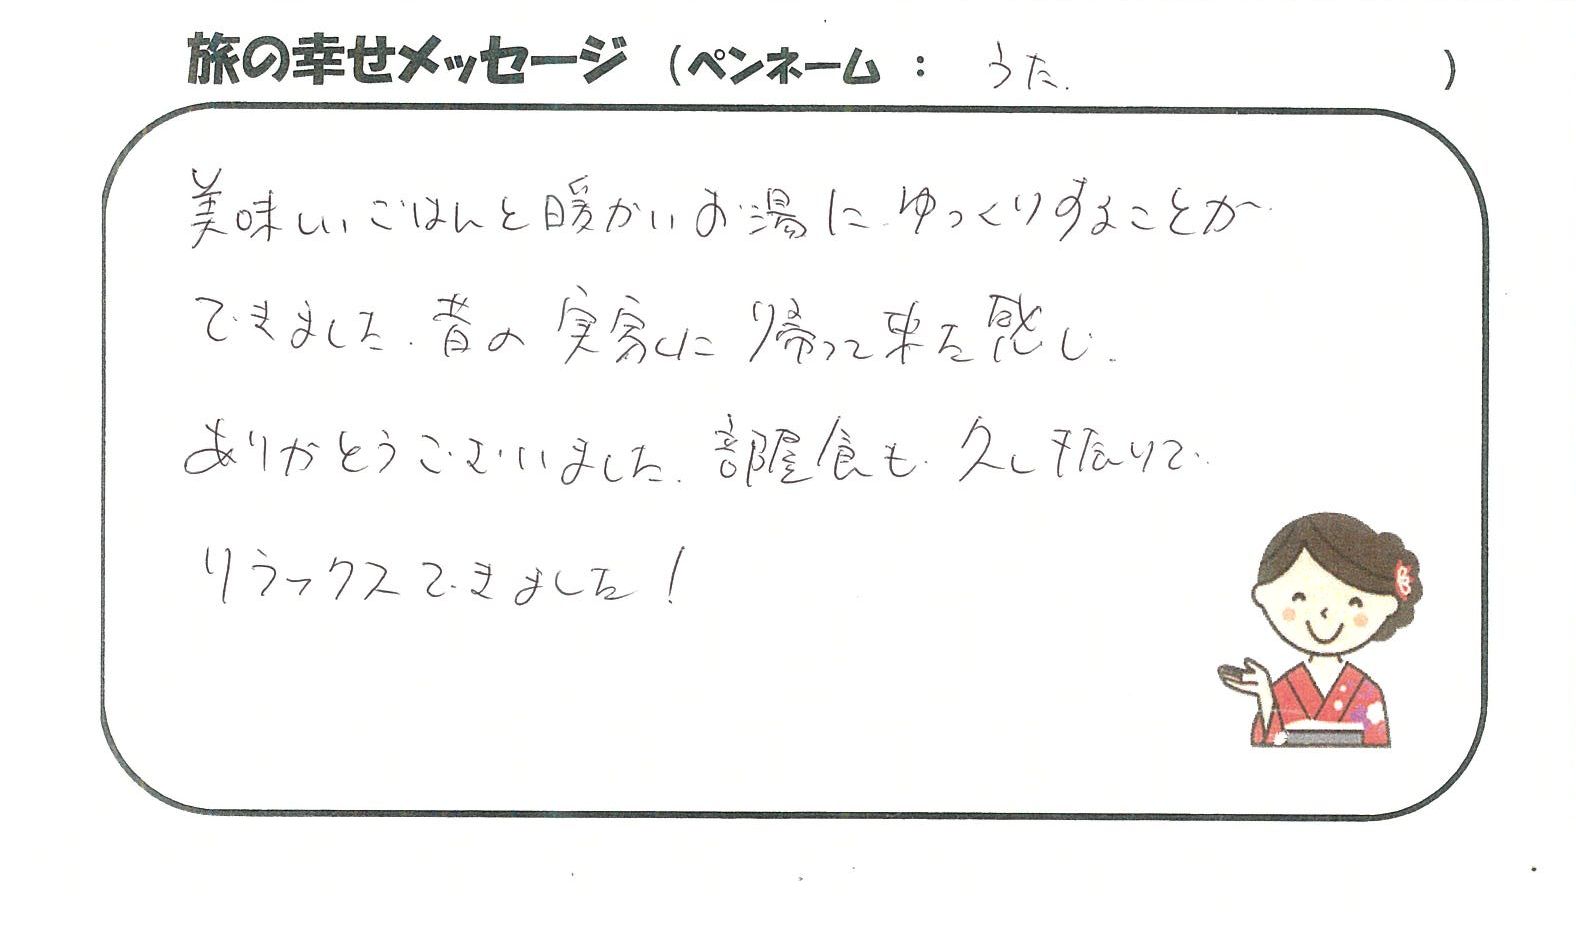 旅の幸せメッセージ (ペンネーム : うた. )
美味しいごはんと暖かいお湯にゆっくりすることが
できました. 昔の実家に帰って来た感じ.
ありがとうございました. 部屋食も久し振りで
リラックスできました!